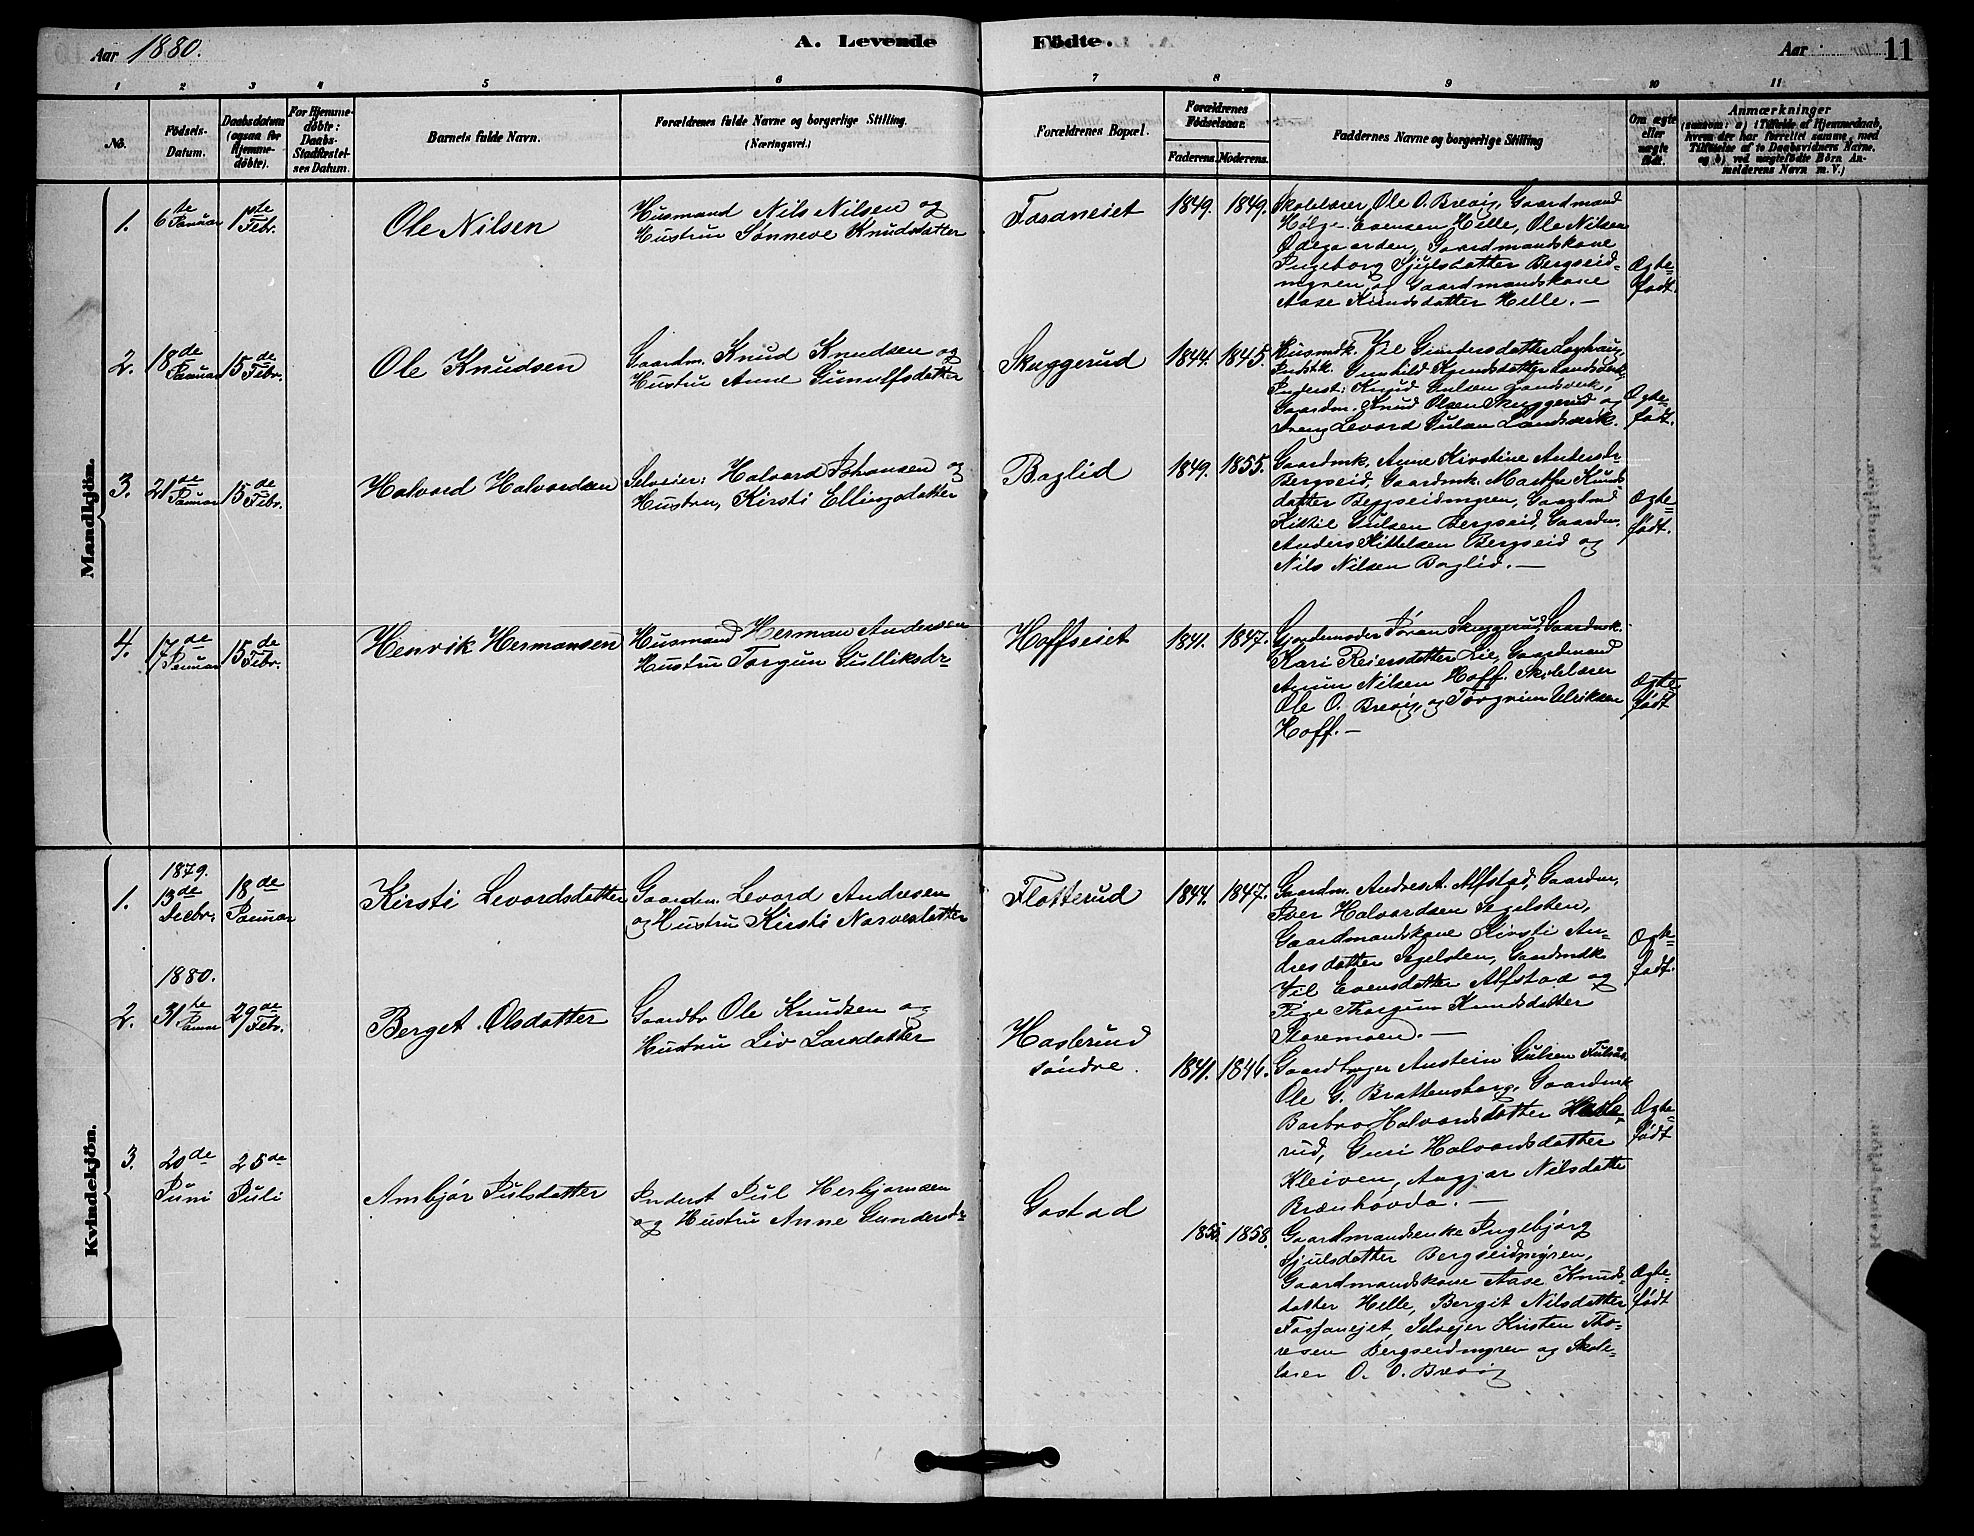 Aar 1880.
A. Levende Fødte.
Aar
11
1 2 3 4 5 6 7 8 9 10 11
No.
Fødsels-
Datum.
Daabsdatum
(ogsaa for
Hjemme-
døbte).
For Hjemme-
døbte:
Daabs-
Stadfæstel-
ses Datum.
Barnets fulde Navn.
Forældrenes fulde Navne og borgerlige Stilling.
(Næringsvei.)
Forældrenes Bopæl.
Forældrenes
Fødselsaar.
Faderens. Moderens.
Faddernes Navne og borgerlige Stilling
Om ægte
eller
uægte
født.
Anmærkninger
(saasom: a) i Tilfælde af Hjemmedaab,
hvem der har forrettet samme, med
Tilføielse af to Daabsvidners Navne.
og b) ved uægtefødte Børn An-
melderens Navn m. V.)
Mandkjøn.
1.
6te Januar
1ste Febr.
Ole Nilsen
Husmand Nils Nilsen og
Hustru Sønneve Knudsdatter
Fosaneiet
1849. 1849.
Skolelærer Ole O. Brevig, Gaardmand
Helge Evensen Helle, Ole Nilsen
Ødegaarden, Gaardmandskone
Ingeborg Sjulsdatter Bergseid-
myren og Gaardmandskone
Aase Knudsdatter Helle. —
Ægte-
født.
2.
18de Januar
15de Febr.
Ole Knudsen
Gaardm. Knud Knudsen og
Hustru Anne Gunulfsdatter
Skuggerud
1844. 1845.
Husmdk. Gundersdatter
Indstk. Gunhild Knudsdatter Landsverk,
Inderst: Knud Landsverk,
Gaardm. Knud Olsen Skuggerud og
Dreng Levord Landsverk.
Ægte-
født.
3.
21de Januar
15de Febr.
Halvord Halvordsen
Selveier: Halvord Johansen og
Hustru, Kirsti Ellingsdatter
Baglid
1849. 1855.
Gaardmk. Anne Kirstine Andersdr
Bergseid, Gaardmk. Marthe Knuds-
datter Bergseidmyren, Gaardmd
Kittil Gulsen Bergseid, Gaardm.
Anders Kittelsen Bergseid og
Nils Nilsen Baglid. —
Ægte-
født.
4.
17de Januar
15de Febr.
Henrik Hermansen
Husmand Herman Andersen
Hustru Torgun Gulliksdr
Hoffseiet
1841. 1847.
Gjordemoder Jøran Skuggerud, Gaardmk.
Kari Reiersdatter Lie, Gaardmand
Amun Nilsen Hoff. Skolelærer
Ole O. Brevig, og Torgrim Ulriksen
Hoff. —
Ægte
født
Kvindekjøn.
1.
1879.
13de Decbr.
18de Januar
Kirsti Levordsdatter
Gaardm. Levord Andresen
og Hustru Kirsti Narvesdatter
Flotterud
1844. 1847.
Gaardm. Andres A. Alfstad, Gaardm.
Iver Halvordsen Segelsten,
Gaardmandskone Kirsti An-
dresdatter Segelsten, Gaardmdk
Evensdatter Alfstad og
Pige Thorgun Knudsdatter
Ægte-
født.
2.
1880.
31te Januar
29de Febr.
Berget Olsdatter
Gaardbr Ole Knudsen og
Hustru Liv Larsdatter
Haslerud
søndre.
1841. 1846.
Gaardbruger Austein Gulsen
Ole G. Brattensborg, Gaardmk
Barbro Halvordsdatter Hasle-
rud, Guri Halvordsdatter
Kleiven, Angjær Nilsdatter
Brænhovda. —
Ægte-
født
3.
20de
Juni
25de
Juli
Ambjør Julsdatter
Inderst Jul Herbjørnsen
og Hustru Anne Gundersdr
Gostad
1855 1858.
Gaardmandsenke Ingebjørg
Sjulsdatter Bergseidmyren,
Gaardmandskone Aase Knuds-
datter Helle, Bergit Nilsdatter
Fosanejet, Selvejer Kristen Tho-
resen Bergseidmyren og Skole-
lærer O. O. Brevig
Ægte-
født